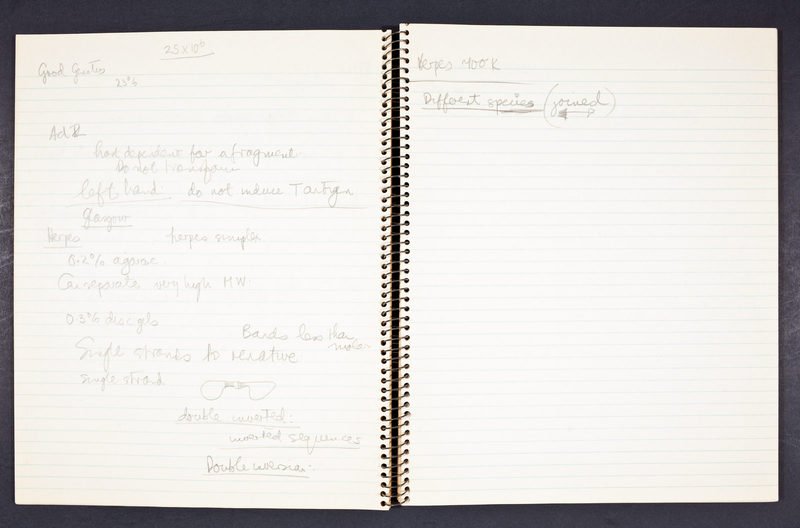 25 x 10⁶
Good Gentis
23%
Ad 2
host dependent for a fragment.
Do not transform
left hand: do not induce T antigen
Glasgow
Herpes herpes simplex
0.2% agarose.
Can separate very high MW.
0.3% disc gels
Bands less than
molar
Single strands to renative
single strand
double inverted:
inverted sequences
Double inversion:
Herpes 100K
Different species (joined)